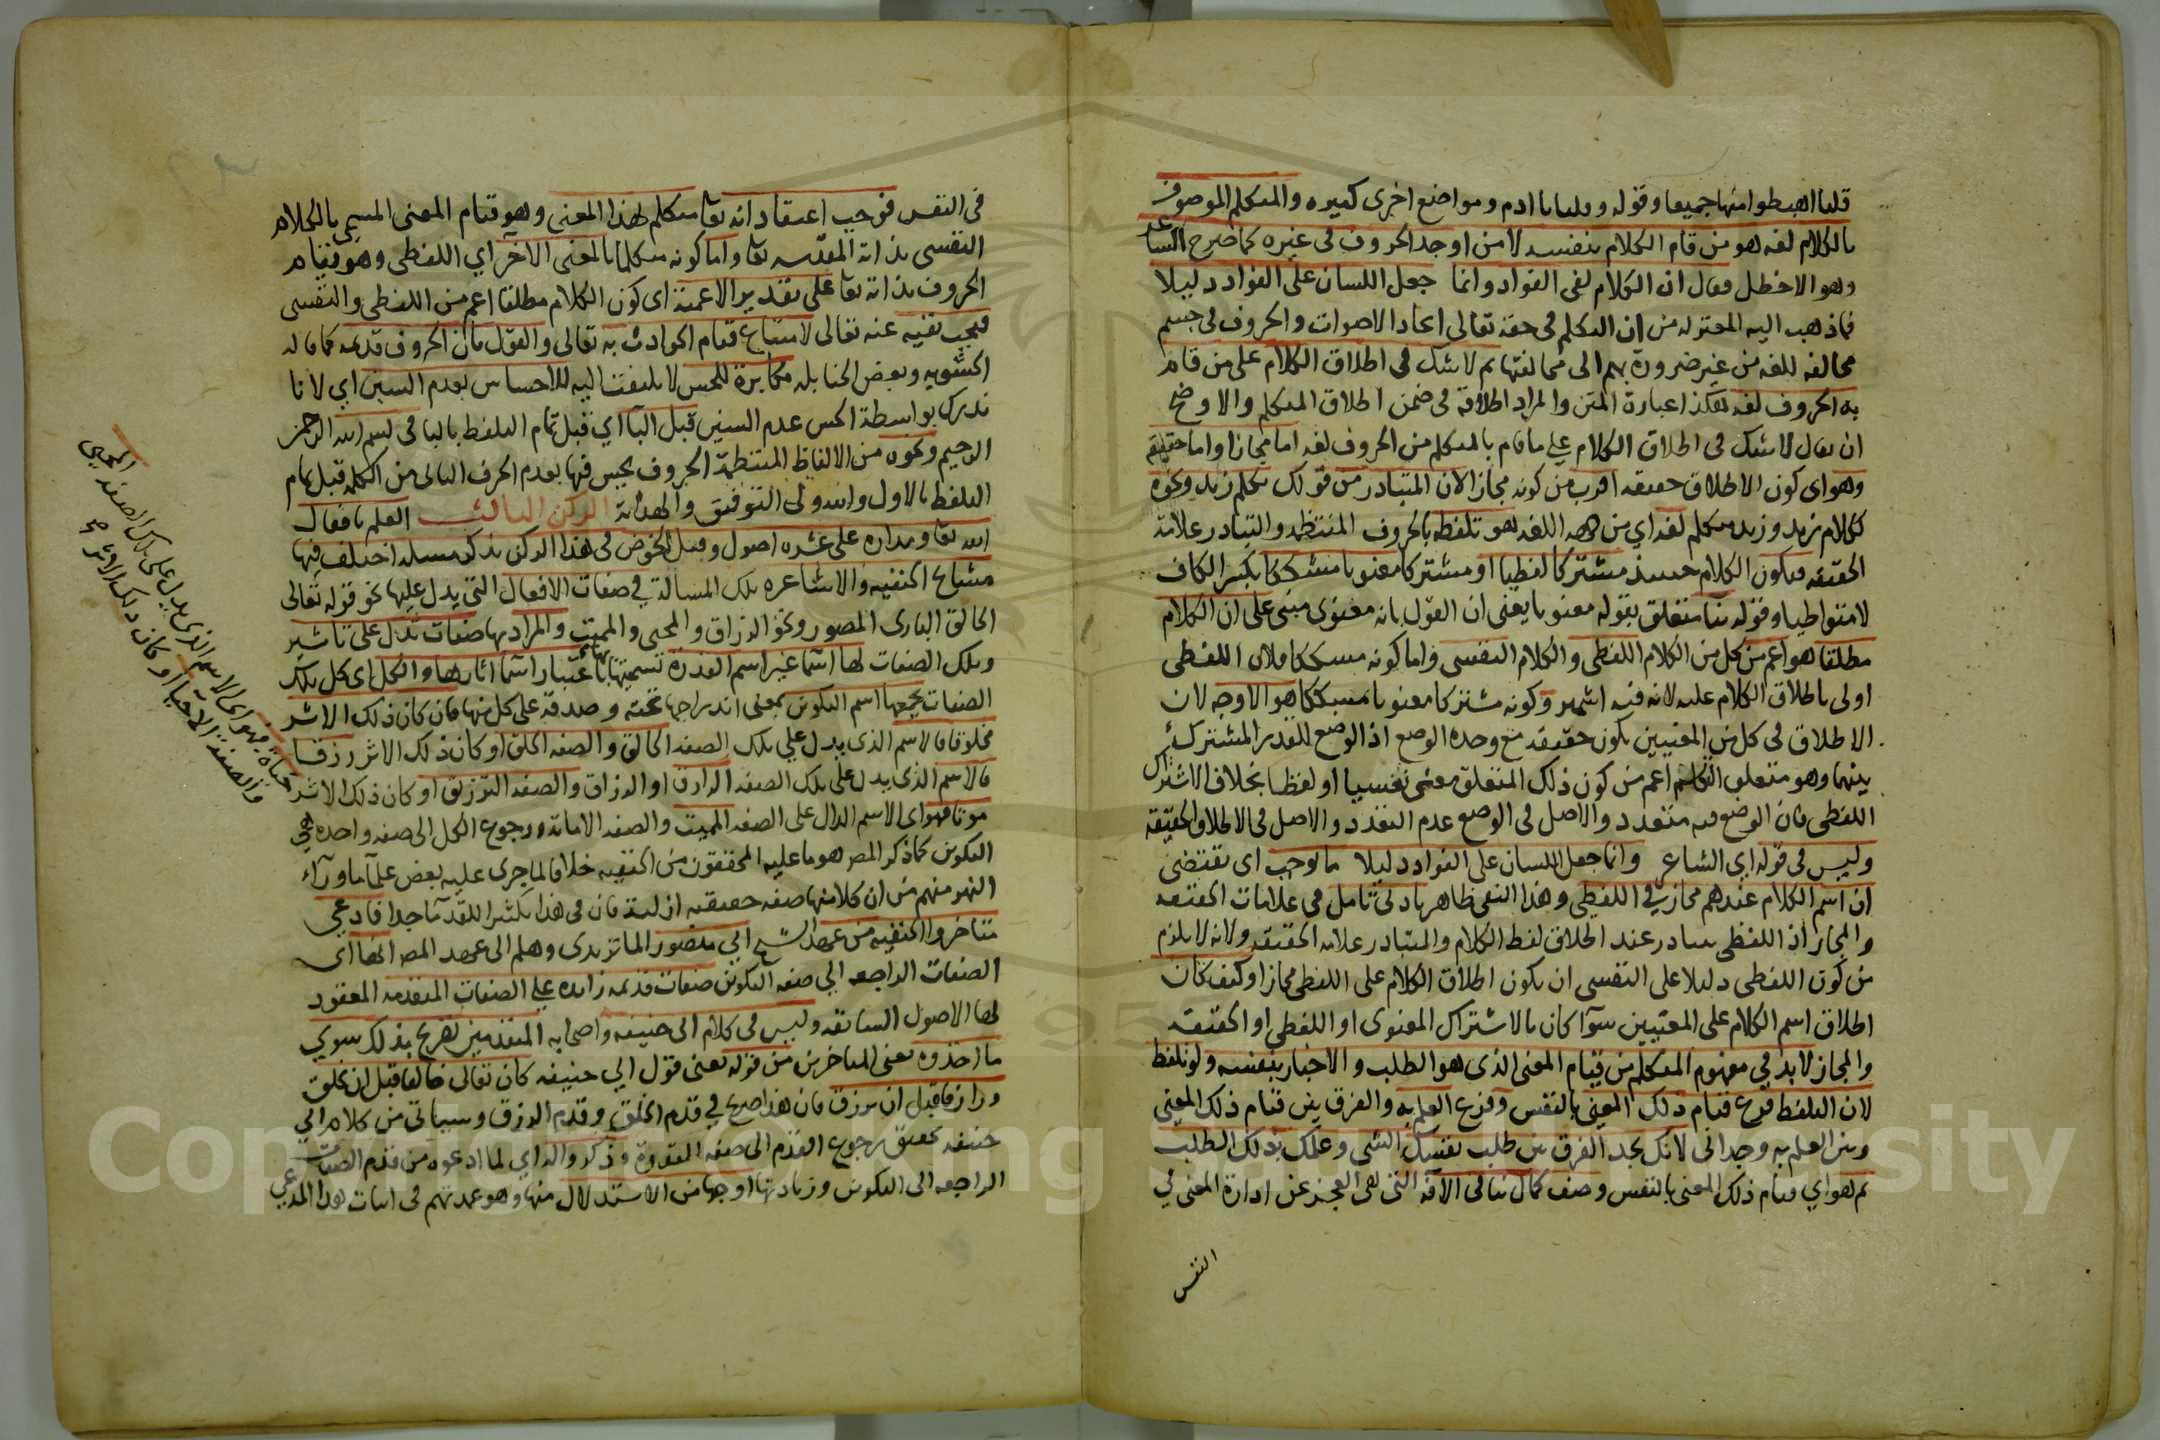 قلنا اهبطوا منها جميعا وقوله وقلنا يا ادم ومواضع اخرى كثيره والمتكلم الموصوف
بالكلام لغه هو من قام الكلام بنفسه لا من اوجد الحروف في غيره كما صرح الشاعر
وهو الاخطل فقال ان الكلام لفي الفواد وانما جعل اللسان على الفواد دليلا
فما ذهب اليه المعتزله من ان المتكلم في حقه تعالى ايجاد الاصوات والحروف في جسم
مخالفه للغه من غير ضرورة بهم الى مخالفتها ثم لا شك في اطلاق الكلام على من قام
به الحروف لغه هكذا عبارة المتن والمراد اطلاقه في ضمن اطلاق المتكلم والاوضح
ان يقال لا شك في اطلاق الكلام على ما قام بالمتكلم من الحروف لغه اما مجازا واما حقيقه
وهو اي كون الاطلاق حقيقه اقرب من كونه مجازا لان المتبادر من قولك تكلم زيد ونحوه
ككلام زيد وزيد متكلم لغه اي من جهه اللغه هو تلفظه بالحروف المنتظمه والتبادر علامة
الحقيقه فيكون الكلام حينئذ مشتركا لفظيا او مشتركا معنويا مشككا بكسر الكاف
لا متواطيا وقوله بنا متعلق بقوله معنويا يعني ان القول بانه معنوى مبنى على ان الكلام
مطلقا هو اعم من كل من الكلام اللفظى والكلام النفسى واما كونه مشككا فلان اللفظى
اولى باطلاق الكلام عليه لانه فيه اشهر وكونه مشتركا معنويا مشككا هو الاوجه لان
الاطلاق في كل من المعنيين يكون حقيقه مع وحده الوضع اذ الوضع للقدر المشترك
بينهما وهو متعلق التكلم اعم من كون ذلك المتعلق معنى نفسيا او لفظا بخلاف الاشتراك
اللفظى فان الوضع فيه متعدد والاصل في الوضع عدم التعدد والاصل في الاطلاق الحقيقه
وليس في قوله اي الشاعر وانما جعل اللسان على الفواد دليلا ما يوجب اى يقتضى
ان اسم الكلام عندهم مجاز في اللفظى وهذا النفي ظاهر بادنى تامل في علامات الحقيقه
والمجاز اذ اللفظى يتبادر عند اطلاق لفظ الكلام والمتبادر علامه الحقيقه ولانه لا يلزم
من كون اللفظى دليلا على النفسى ان يكون اطلاق الكلام على اللفظى مجازا وكيف كان
اطلاق اسم الكلام على المعنيين سوآ كان بالاشتراك المعنوى او اللفظى او الحقيقه
والمجاز لا بد في مفهوم المتكلم من قيام المعنى الذى هو الطلب والاخبار بنفسه ولو تلفظ
لان التلفظ فرع قيام ذلك المعنى بالنفس وفرع العلم به والفرق بين قيام ذلك المعنى
وبين العلم به وجدانى لانك تجد الفرق بين طلب نفسك الشى وعلمك بذلك الطلب
ثم هو اي قيام ذلك المعنى بالنفس وصف كمال ينافى الآفه التى هي العجز عن ادارة المعنى في
النفس
فى النفس فوجب اعتقاد انه تعا متكلم بهذا المعنى وهو قيام المعنى المسمى بالكلام
النفسى بذاته المقدسه تعا واما كونه متكلما بالمعنى الاخر اي اللفظى وهو قيام
الحروف بذاته تعا على تقدير الاعمية اى كون الكلام مطلقا اعم من اللفظى والنفسى
فيجب نفيه عنه تعالى لامتناع قيام الحوادث به تعالى والقول بان الحروف قديمه كما قاله
الحشويه وبعض الحنابله مكابرة للحس لا يلتفت اليه للاحساس بعدم السين اي لانا
ندرك بواسطة الحس عدم السين قبل البآ اي قبل تمام التلفظ بالبا في بسم الله الرحمن
الرحيم ونحوه من الالفاظ المنتظمة الحروف يحس فيها بعدم الحرف التالى من الكلمه قبل تمام
التلفظ بالاول والله ولي التوفيق والهداية الركن الثالث العلم بافعال
الله تعا ومداره على عشره اصول وقبل الخوض في هذا الركن نذكر مسئله اختلف فيها
مشايخ الحنفيه والاشاعره تلك المسالة في صفات الافعال التى يدل عليها نحو قوله تعالى
الخالق البارى المصور ونحو الرزاق والمحيى والمميت والمراد بها صفات تدل على تاثير
وتلك الصفات لها اسما غير اسم القدرة تسميتها بها باعتبار اسما اثارها والكل اى كل تلك
الصفات يجمعها اسم التكوين بمعنى اندراجها تحته وصدقه على كل منها فان كان ذلك الاثر
مخلوقا فالاسم الذى يدل على تلك الصفه الخالق والصفه الخلق او كان ذلك الاثر رزقا
فالاسم الذى يدل على تلك الصفه الرازق او الرزاق والصفه الترزيق او كان ذلك الاثر
موتا فهو اى الاسم الدال على الصفه المميت والصفه الاماته ورجوع الكل الى صفه واحده هي
التكوين كما ذكر المص هو ما عليه المحققون من الحنفيه خلافا لما جرى عليه بعض علمآ ما ورآء
النهر منهم من ان كلا منها صفه حقيقيه ازلية فان في هذا تكثيرا للقدمآ جدا فادعى
متاخروا الحنفيه من عهد الشيخ ابي منصور الماتريدى وهلم الى عهد المص انها اى
الصفات الراجعه الي صفه التكوين صفات قديمه زايده على الصفات المتقدمه المعقود
لها الاصول السابقه وليس فى كلام ابي حنيفه واصحابه المتقدمين تصريح بذلك سوي
ما اخذوه يعنى المتاخرين من قوله يعنى قول ابي حنيفه كان تعالى خالقا قبل ان يخلق
ورازقا قبل ان يرزق فان هذا صريح في قدم الخلق وقدم الرزق وسياتى من كلام ابي
حنيفه تحقيق رجوع القدم الى صفه القدرة وذكروا اي لما ادعوه من قدم الصفات
الراجعه الى التكوين وزيادتها اوجها من الاستدلال منها وهو عمدتهم في اثبات هذا المدعى
حياة فهو اى الاسم الذى يدل على تلك الصفه المحيى
والصفه الاحيا او كان ذلك الاثر صح
Copyright © King Saud University